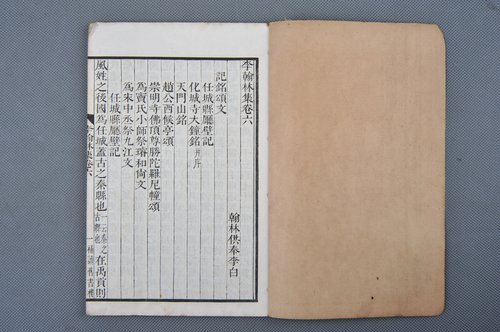 李翰林集卷六
翰林供奉李白
記銘頌文
任城縣廳壁記
化城寺大鐘銘并序
天門山銘
趙公西候亭頌
崇明寺佛頂尊勝陀羅尼幢頌
為竇氏小師祭璿和尚文
為宋中丞祭九江文
任城縣廳壁記
風姓之後國為任城蓋古之秦縣也一云秦之古縣也在禹貢則
李翰林集卷六